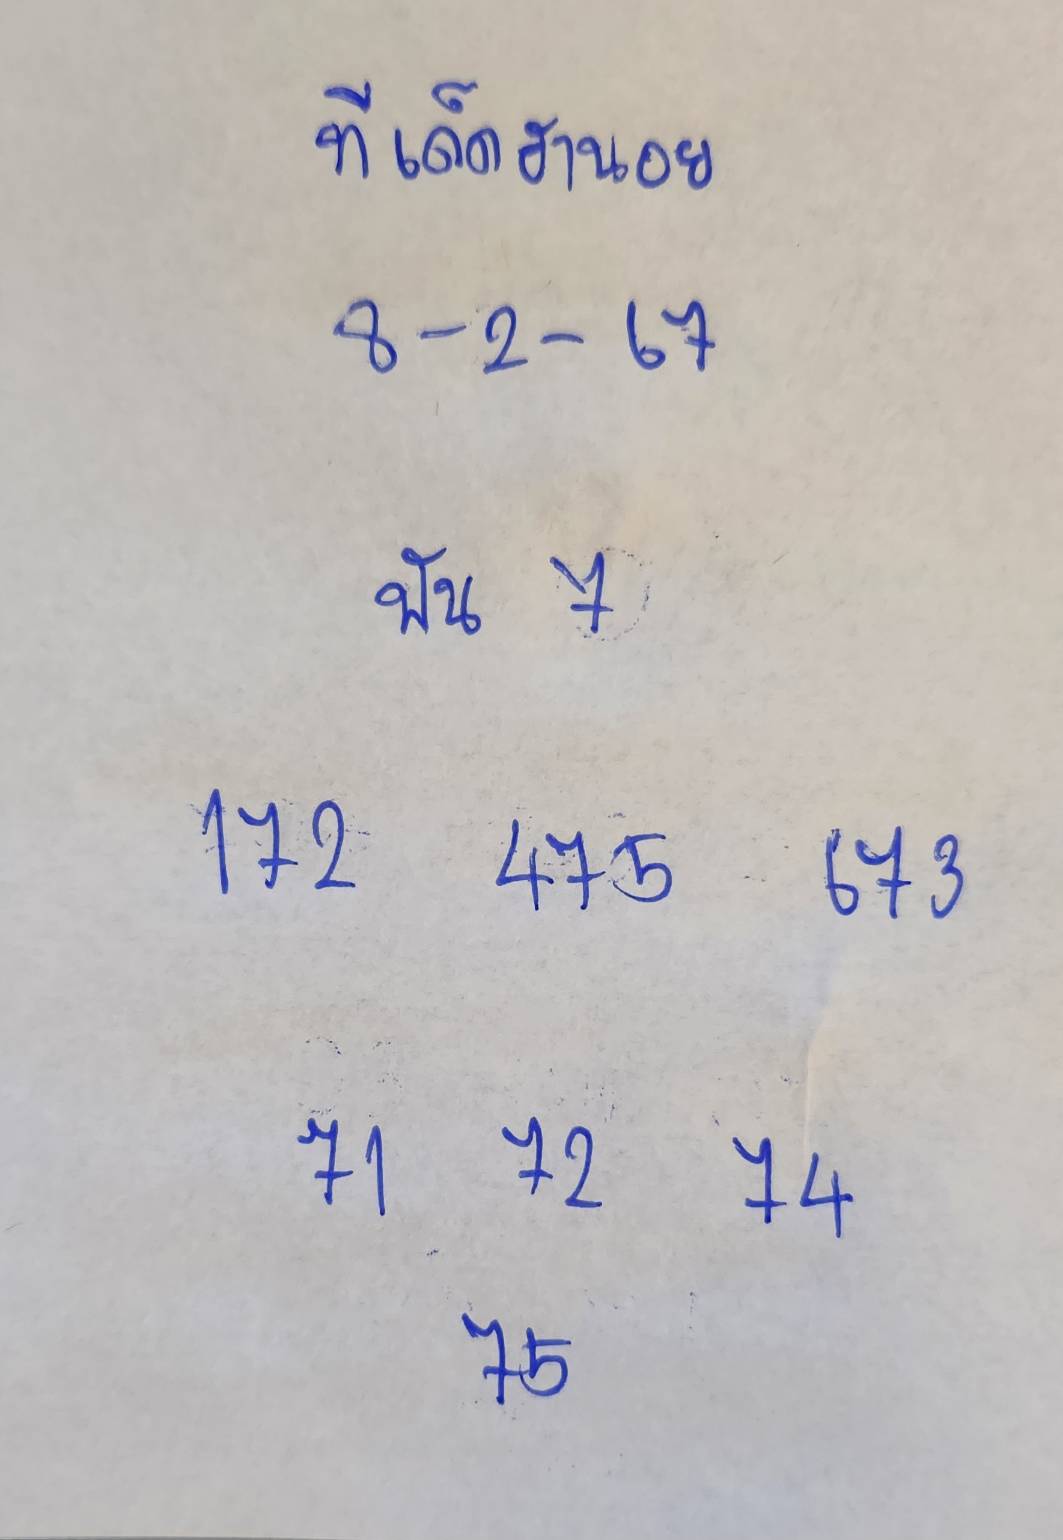 ทีเด็ดฮานอย
8-2-67
ฟัน 7
172 475 673
71 72 74
75